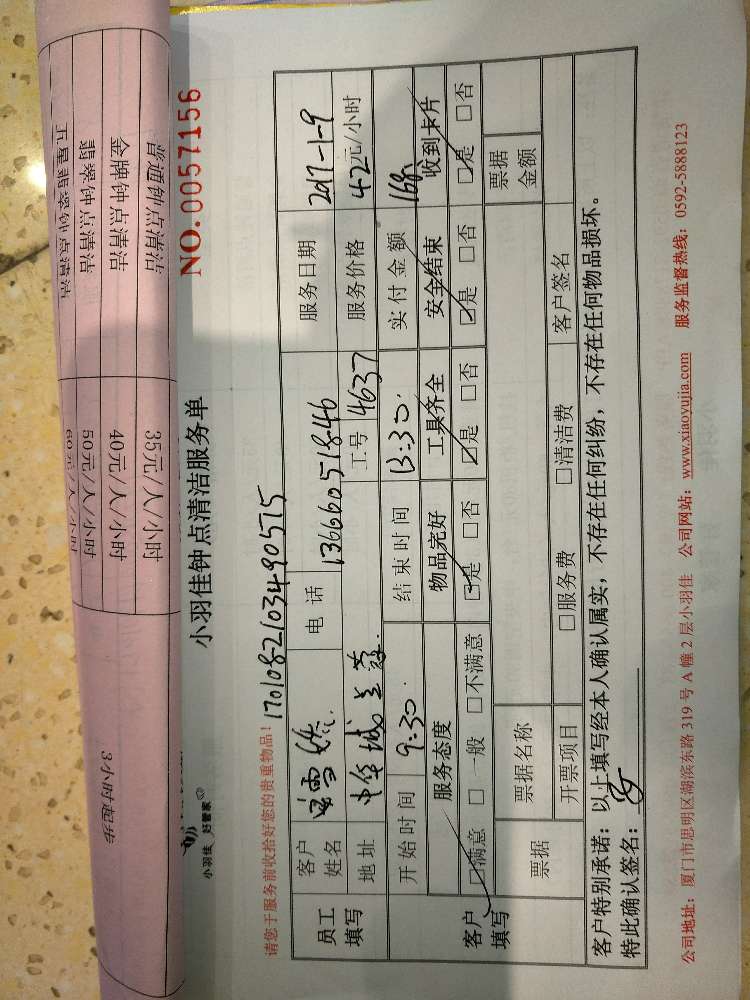 普通钟点清洁 35元/人/小时
金牌钟点清洁 40元/人/小时
翡翠钟点清洁 50元/人/小时
五星翡翠钟点清洁 60元/人/小时
3小时起步
小羽佳 好管家
小羽佳钟点清洁服务单
NO.0057156
请您于服务前收拾好您的贵重物品!
1701082103490575
员工填写
客户姓名
电话 13666051846
服务日期 2017-1-9
地址
工号 4637
服务价格 42元/小时
开始时间 9:30
结束时间 13:30.
实付金额 168
客户填写
服务态度 物品完好 工具齐全 安全结束 收到卡片
☑满意 □一般 □不满意 ☑是 □否 ☑是 □否 ☑是 □否 ☑是 □否
票据
票据名称
票据金额
开票项目 □服务费 □清洁费 客户签名
客户特别承诺:以上填写经本人确认属实,不存在任何纠纷,不存在任何物品损坏。
特此确认签名:
公司地址:厦门市思明区湖滨东路319号A幢2层小羽佳 公司网站:www.xiaoyujia.com 服务监督热线:0592-5888123